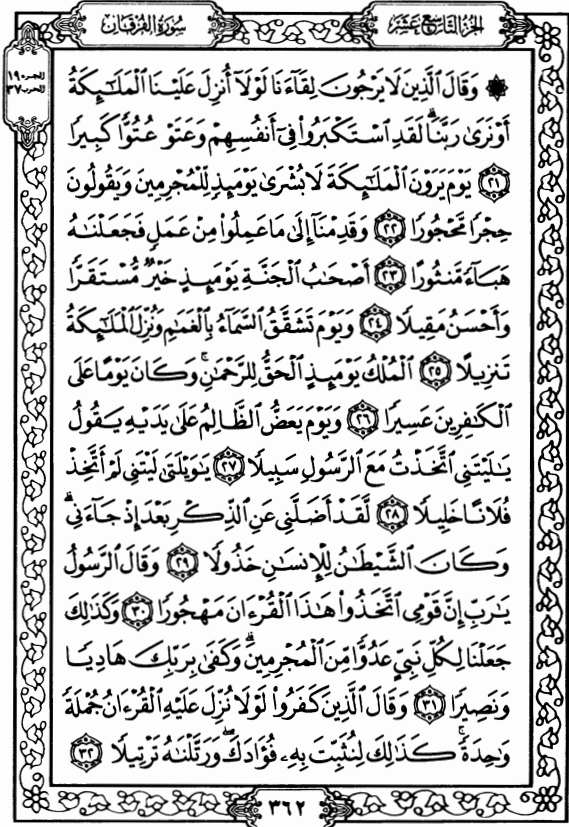 سُورَةُ الفُرْقَان
الجُزْءُ التَّاسِعَ عَشَر
الجزء ١٩
الحزب ٣٧
۞ وَقَالَ ٱلَّذِينَ لَا يَرْجُونَ لِقَآءَنَا لَوْلَآ أُنزِلَ عَلَيْنَا ٱلْمَلَٰٓئِكَةُ
أَوْ نَرَىٰ رَبَّنَا ۗ لَقَدِ ٱسْتَكْبَرُوا۟ فِىٓ أَنفُسِهِمْ وَعَتَوْ عُتُوًّا كَبِيرًا
٢١ يَوْمَ يَرَوْنَ ٱلْمَلَٰٓئِكَةَ لَا بُشْرَىٰ يَوْمَئِذٍ لِّلْمُجْرِمِينَ وَيَقُولُونَ
حِجْرًا مَّحْجُورًا ٢٢ وَقَدِمْنَآ إِلَىٰ مَا عَمِلُوا۟ مِنْ عَمَلٍ فَجَعَلْنَٰهُ
هَبَآءً مَّنثُورًا ٢٣ أَصْحَٰبُ ٱلْجَنَّةِ يَوْمَئِذٍ خَيْرٌ مُّسْتَقَرًّا
وَأَحْسَنُ مَقِيلًا ٢٤ وَيَوْمَ تَشَقَّقُ ٱلسَّمَآءُ بِٱلْغَمَٰمِ وَنُزِّلَ ٱلْمَلَٰٓئِكَةُ
تَنزِيلًا ٢٥ ٱلْمُلْكُ يَوْمَئِذٍ ٱلْحَقُّ لِلرَّحْمَٰنِ ۚ وَكَانَ يَوْمًا عَلَى
ٱلْكَٰفِرِينَ عَسِيرًا ٢٦ وَيَوْمَ يَعَضُّ ٱلظَّالِمُ عَلَىٰ يَدَيْهِ يَقُولُ
يَٰلَيْتَنِى ٱتَّخَذْتُ مَعَ ٱلرَّسُولِ سَبِيلًا ٢٧ يَٰوَيْلَتَىٰ لَيْتَنِى لَمْ أَتَّخِذْ
فُلَانًا خَلِيلًا ٢٨ لَّقَدْ أَضَلَّنِى عَنِ ٱلذِّكْرِ بَعْدَ إِذْ جَآءَنِى ۗ
وَكَانَ ٱلشَّيْطَٰنُ لِلْإِنسَٰنِ خَذُولًا ٢٩ وَقَالَ ٱلرَّسُولُ
يَٰرَبِّ إِنَّ قَوْمِى ٱتَّخَذُوا۟ هَٰذَا ٱلْقُرْءَانَ مَهْجُورًا ٣٠ وَكَذَٰلِكَ
جَعَلْنَا لِكُلِّ نَبِىٍّ عَدُوًّا مِّنَ ٱلْمُجْرِمِينَ ۗ وَكَفَىٰ بِرَبِّكَ هَادِيًا
وَنَصِيرًا ٣١ وَقَالَ ٱلَّذِينَ كَفَرُوا۟ لَوْلَا نُزِّلَ عَلَيْهِ ٱلْقُرْءَانُ جُمْلَةً
وَٰحِدَةً ۚ كَذَٰلِكَ لِنُثَبِّتَ بِهِۦ فُؤَادَكَ ۖ وَرَتَّلْنَٰهُ تَرْتِيلًا ٣٢
٣٦٢